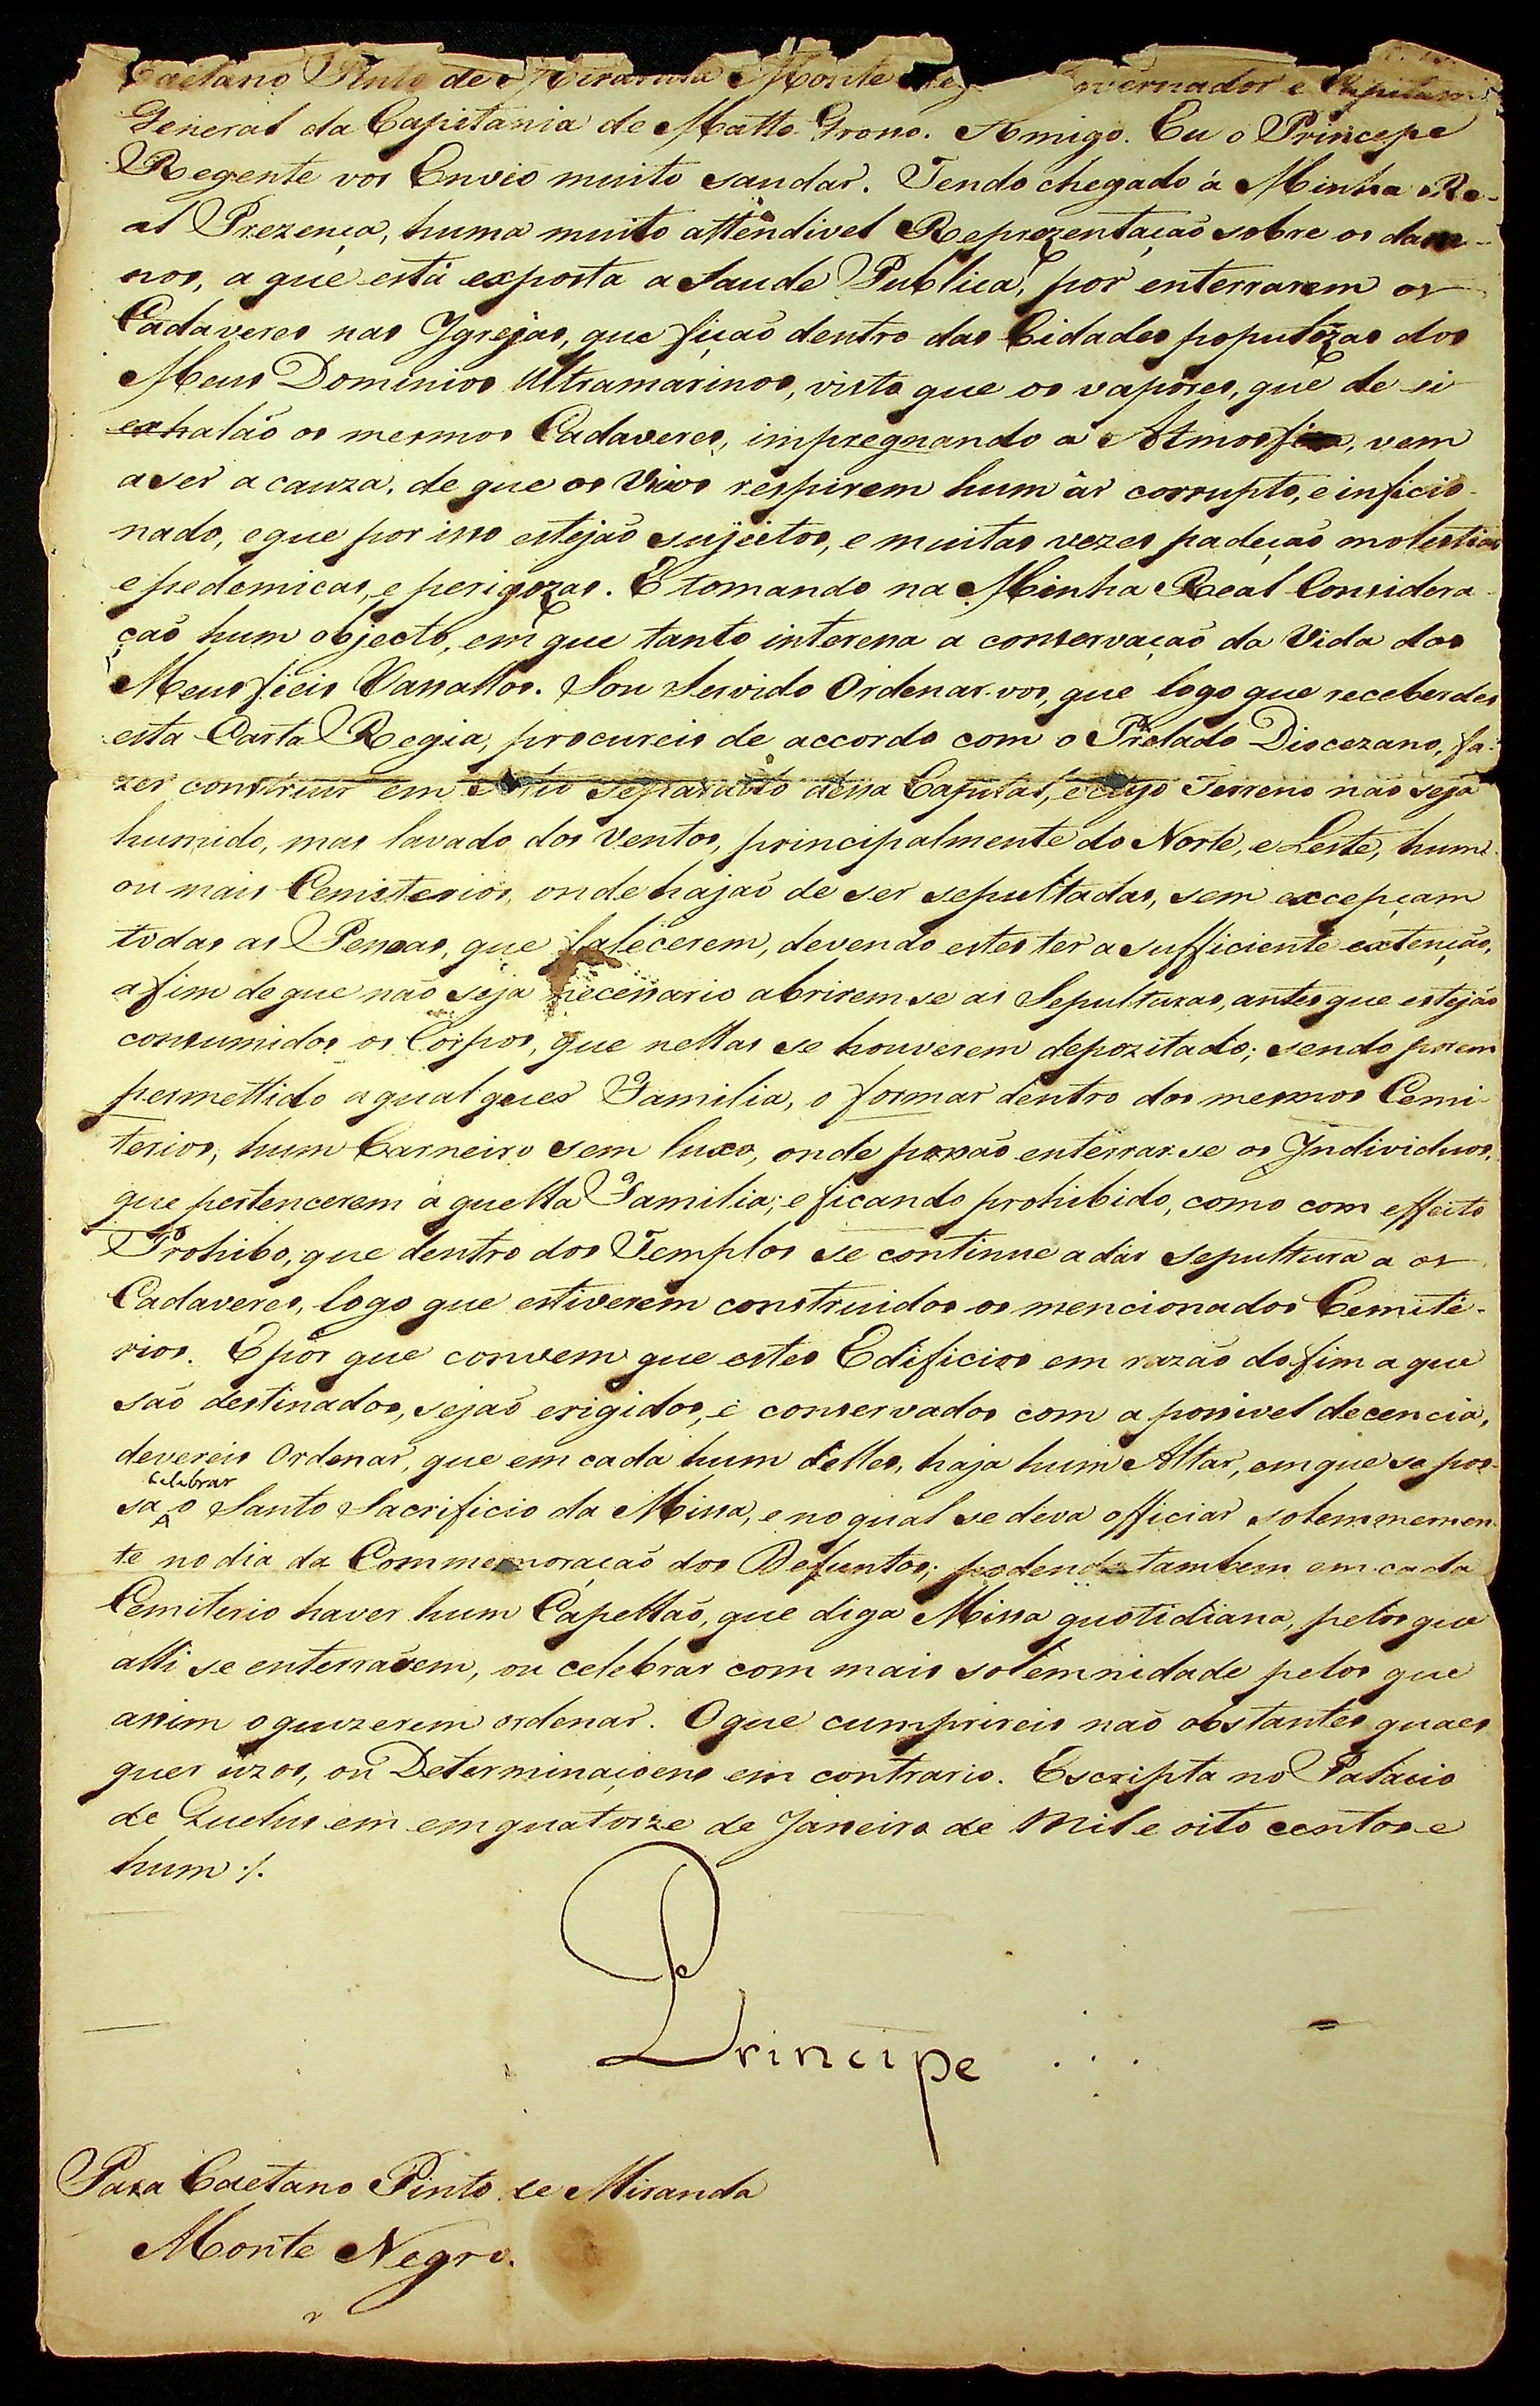 Caetano Pinto de Miranda Monte Neg overnador e Capitam
General da Capitania de Matto Grosso. Amigo. Eu o Principe
Regente vos Envio muito saudar. Tendo chegado á Minha Re-
al Prezença, huma muito attendivel Reprezentaçaõ sobre os dam-
nos, a que está exposta a Saude Publica, por enterrarem os
Cadaveres nas Ygrejas, que ficaõ dentro das Cidades populozas dos
Meus Dominios Ultramarinos, visto que os vapores, que de si
exhalaõ os mesmos Cadaveres, impregnando a Atmosfera, vem
a ser a cauza, de que os Vivos respirem hum ár corrupto, e inficio-
nado, e que por isso estejaõ sujeitos, e muitas vezes padeçaõ molestias
epedemicas, e perigozas. E tomando na Minha Real Considera-
çaõ hum objecto, em que tanto interessa a conservaçaõ da Vida dos
Meus fieis Vassallos. Sou Servido Ordenar-vos, que logo que receberdes
esta Carta Regia, procureis de accordo com o Prelado Diocezano, fa-
zer construir em sitio separado dessa Capital, e cujo Terreno naõ seja
humido, mas lavado dos Ventos, principalmente do Norte, e Leste, hum
ou mais Cemiterios, onde hajaõ de ser sepultadas, sem excepçam
todas as Pessoas, que falecerem, devendo estes ter a sufficiente extençaõ,
a fim de que naõ seja necessario abrirem-se as Sepulturas, antes que estejaõ
consumidos os Corpos, que nellas se houverem depozitado; sendo porem
permettido a qualquer Familia, o formar dentro dos mesmos Cemi-
terios, hum Carneiro sem luxo, onde possaõ enterrar-se os Individuos,
que pertencerem á quella Familia; e ficando prohibido, como com effeito
Prohibo, que dentro dos Templos se continue a dar sepultura a os
Cadaveres, logo que estiverem construidos os mencionados Cemite-
rios. E por que convem que estes Edificios em razaõ do fim a que
saõ destinados, sejaõ erigidos, e conservados com a possivel decencia,
devereis Ordenar, que em cada hum delles, haja hum Altar, em que se pos-
celebrar
sa o Santo Sacrificio da Missa, e no qual se deva officiar solemnemen-
te no dia da Commemoraçaõ dos Defuntos; podendo tambem em cada
Cemiterio haver hum Capellaõ, que diga Missa quotidiana, pelos que
alli se enterrarem, ou celebrar com mais solemnidade pelos que
assim o quizerem ordenar. O que cumprireis naõ obstantes quaes
quer uzos, ou Determinaçoens em contrario. Escripta no Palacio
de Queluz em em quatorze de Janeiro de Mil e oito centos e
hum ./.
Principe
Para Caetano Pinto de Miranda
Monte Negro.